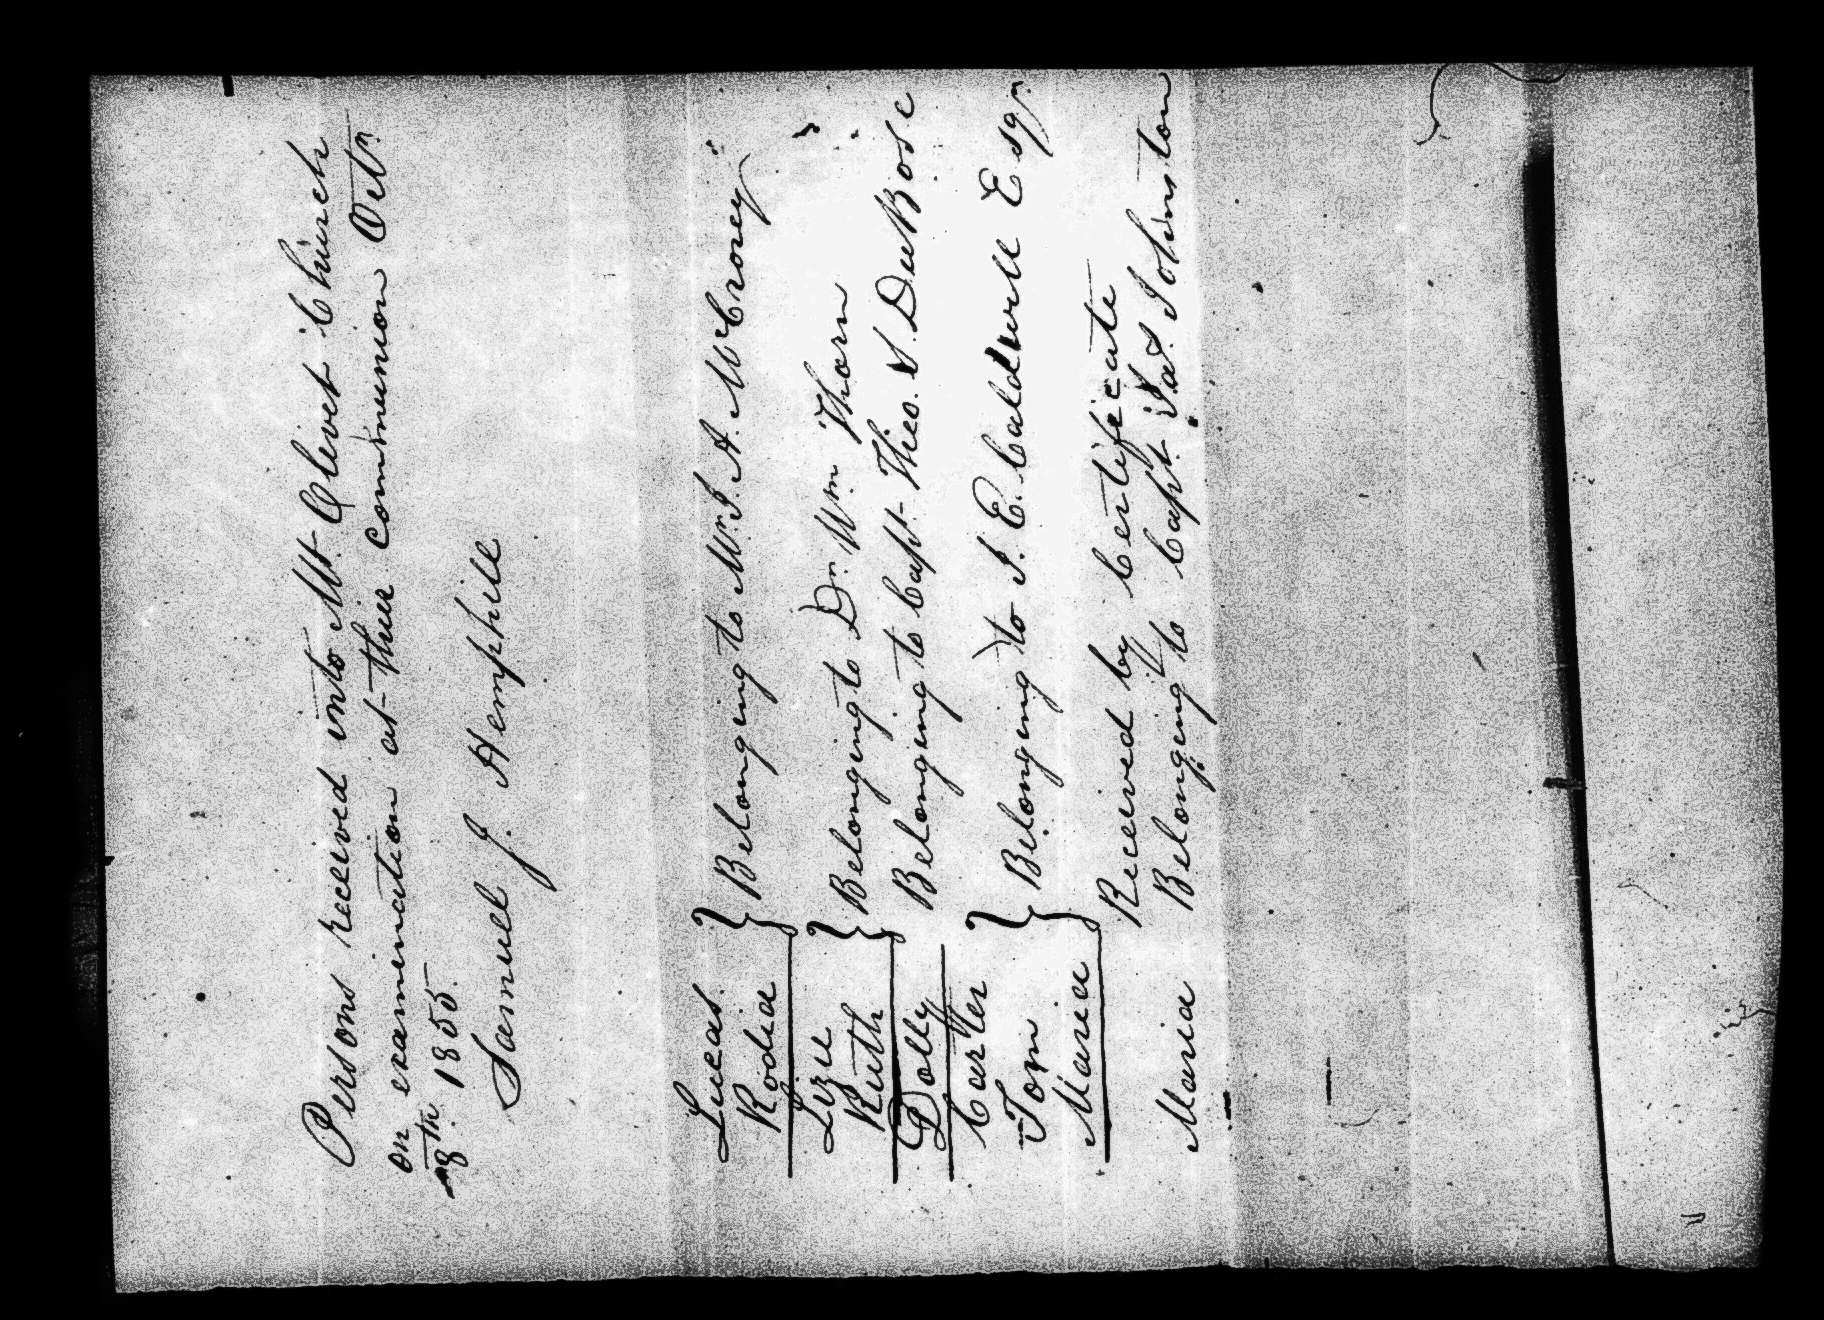 Persons received into Mt Olivet Church
on examination at their communion Octr
8th 1855.
Samuel J. Hemphill
Lucas.
Rodia } Belonging to Mr. J. A. McCrorey
Lize
Ruth } Belonging to Dr. Wm. Thorn
Dolly Belonging to Capt. Theo. S. DuBose
Carter
Tom } Belonging to J. E. Caldwell Esqr
Maria
Received by Certificate
Maria Belonging to Capt. Jas. Johnston